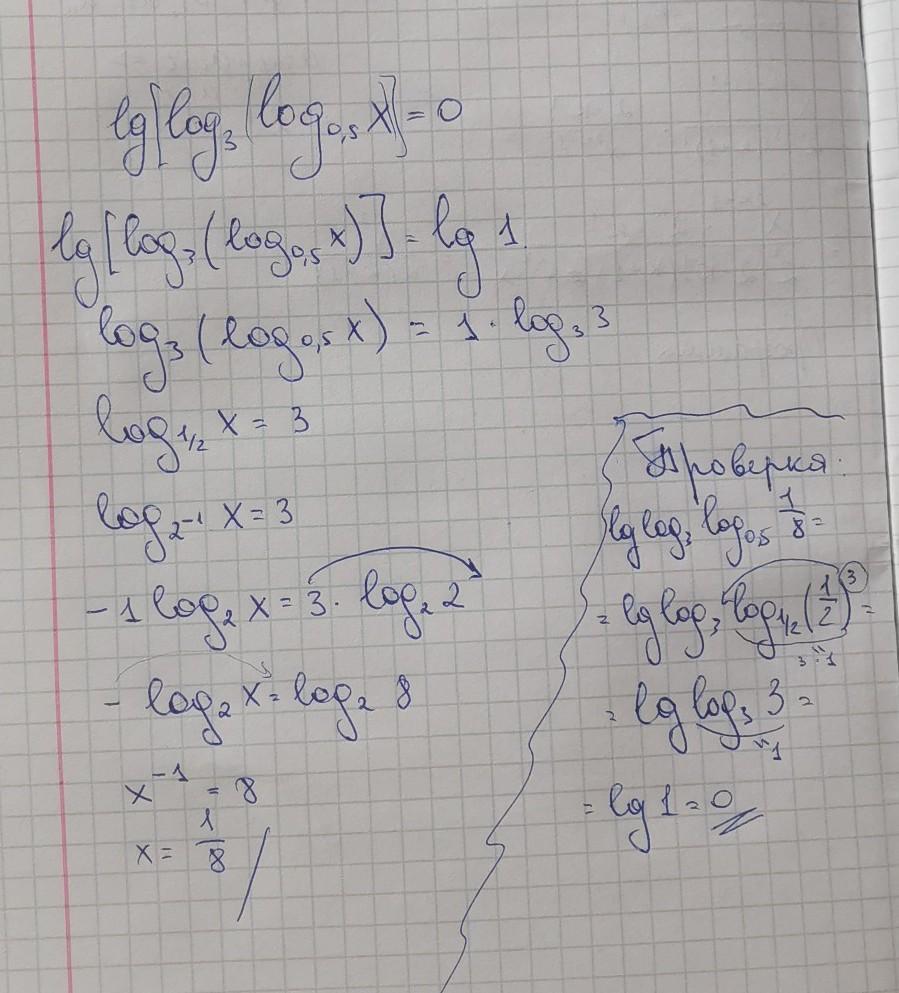 lg[log₃(log₀,₅ x)] = 0
lg[log₃(log₀,₅ x)] = lg 1
log₃(log₀,₅ x) = 1 · log₃ 3
log₁/₂ x = 3
log₂₋₁ x = 3
-1 log₂ x = 3 · log₂ 2
- log₂ x = log₂ 8
x⁻¹ = 8
x = 1/8
Проверка:
lg log₃ log₀,₅ 1/8 =
= lg log₃ log₁/₂ (1/2)³ =
3·1
= lg log₃ 3 =
"1
= lg 1 = 0